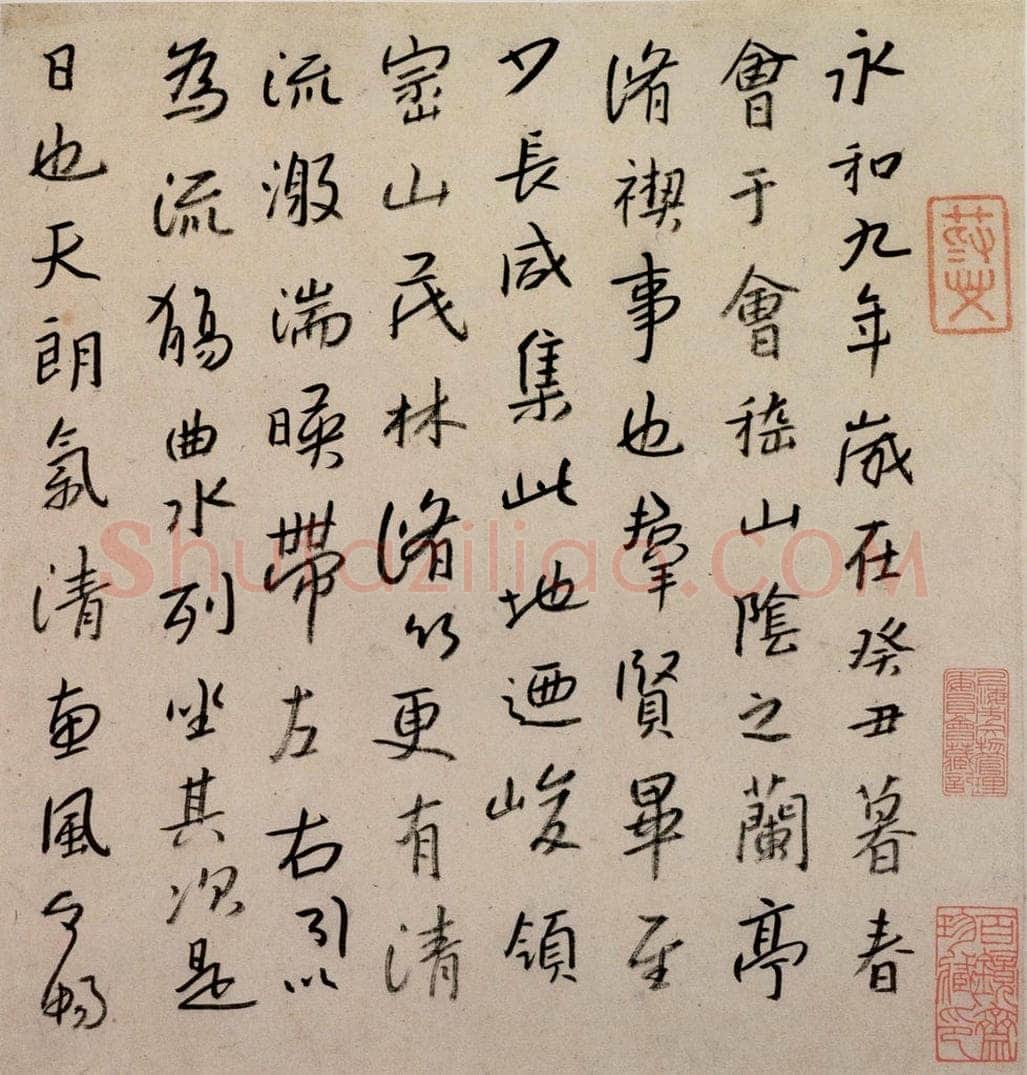 永和九年歲在癸丑暮春
會于會稽山陰之蘭亭
脩禊事也羣賢畢至
少長咸集此地迺峻領
崇山茂林脩竹更有清
流激湍暎帶左右引以
為流觴曲水列坐其次是
日也天朗氣清惠風和暢
Shufaziliao.COM